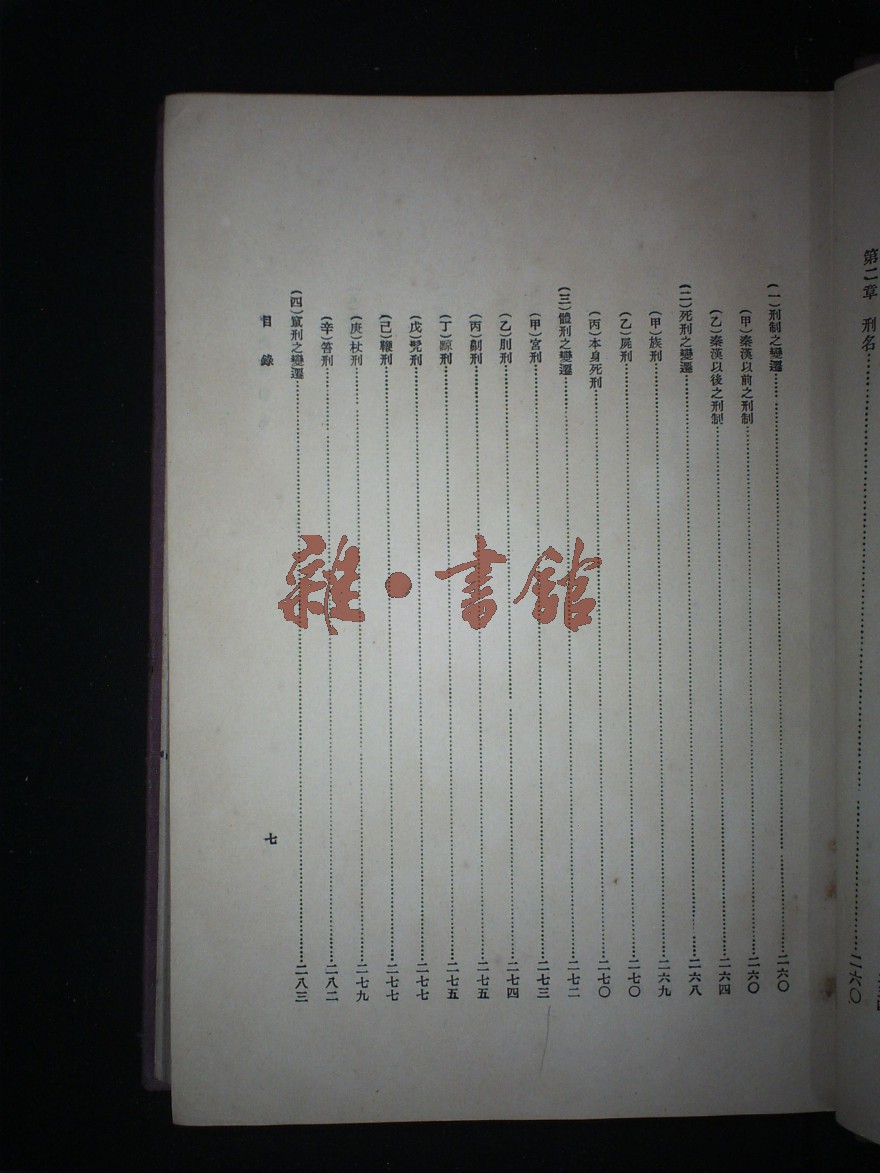 第二章 刑名……二六〇
(一)刑制之變遷……二六〇
(甲)秦漢以前之刑制……二六〇
(乙)秦漢以後之刑制……二六四
(二)死刑之變遷……二六八
(甲)族刑……二六九
(乙)屍刑……二七〇
(丙)本身死刑……二七〇
(三)體刑之變遷……二七二
(甲)宮刑……二七三
(乙)刖刑……二七四
(丙)劓刑……二七五
(丁)黥刑……二七五
(戊)髡刑……二七七
(己)鞭刑……二七七
(庚)杖刑……二七九
(辛)笞刑……二八二
(四)竄刑之變遷……二八三
目錄
七
雜·書館